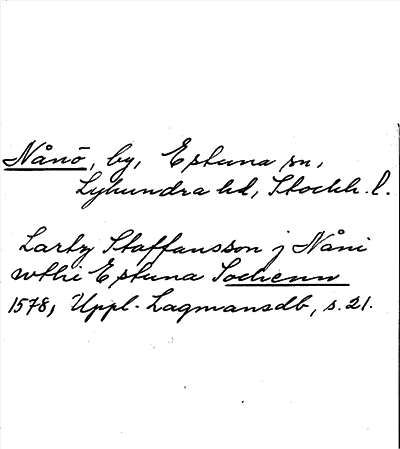 Nånö, by, Estuna sn,
Lyhundra hd, Stockh. l.
Lartz Staffansson j Nåni
wthi Estuna Sochenn
1578, Uppl. Lagmansdb, s. 21.